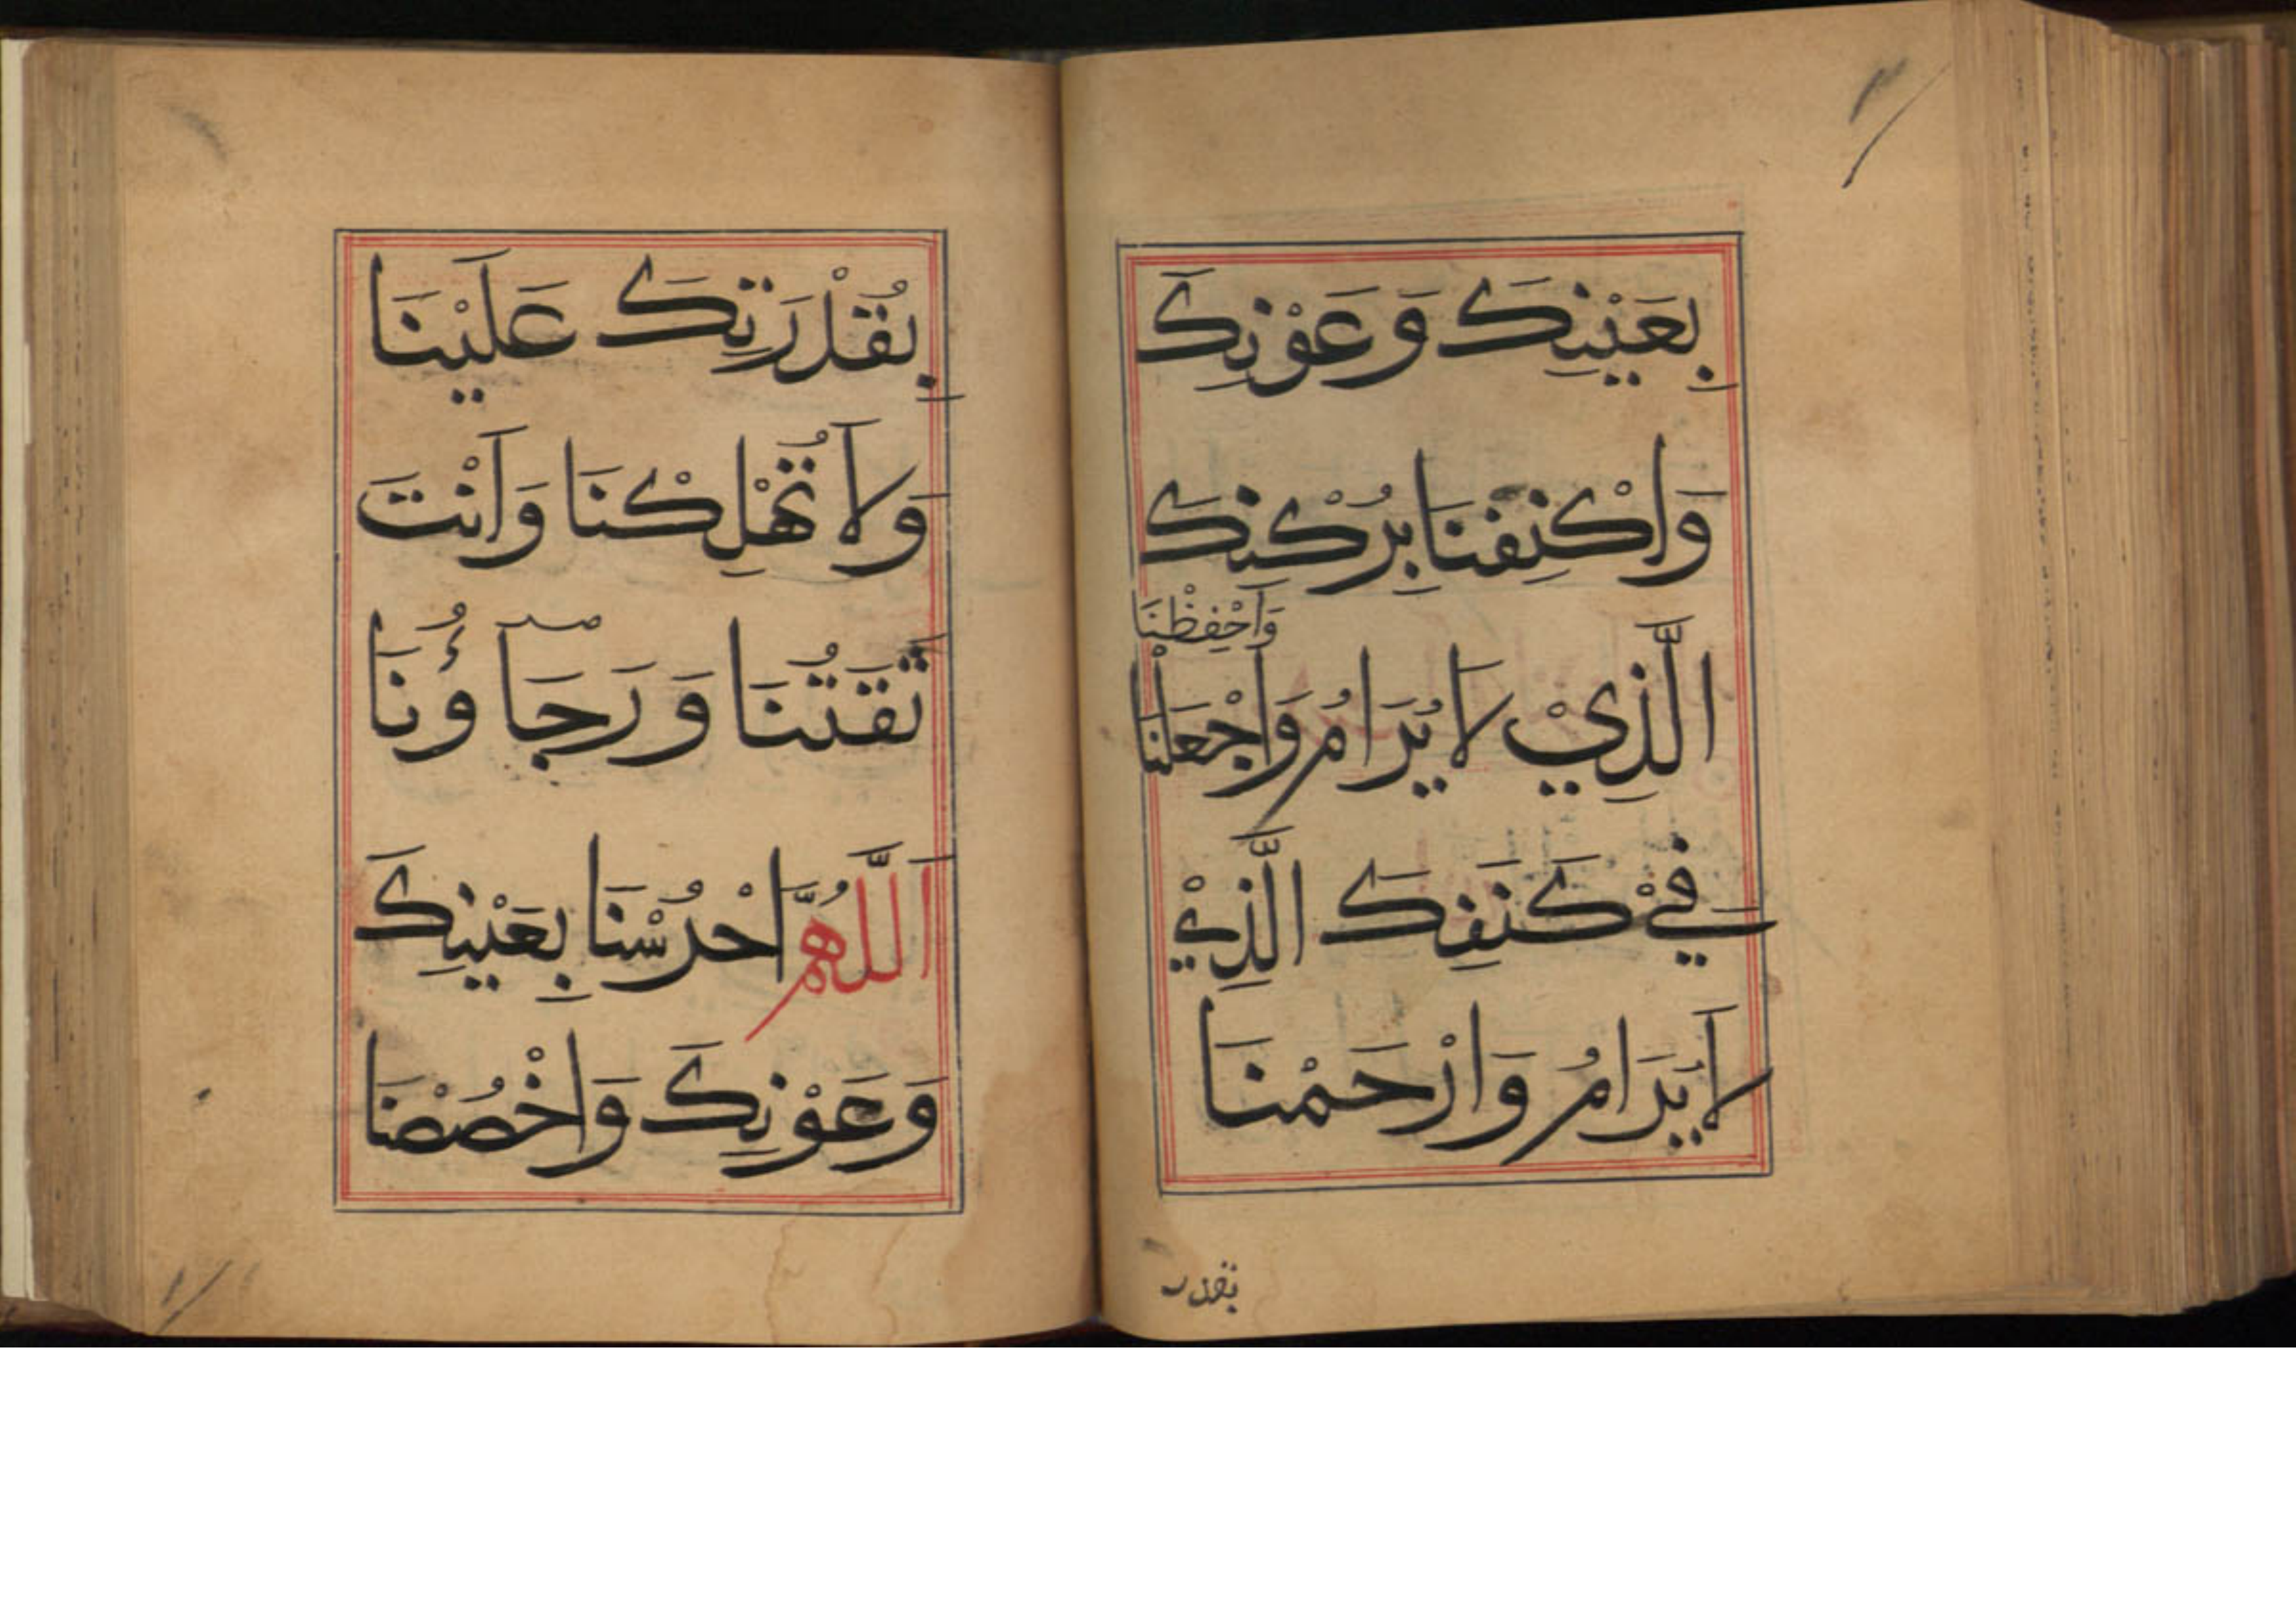 بِعَيْنِكَ وَعَوْنِكَ
وَاكْنِفْنَا بِرُكْنِكَ
وَاحْفِظْنَا
الَّذِيْ لَا يُرَامُ وَاجْعَلْنَا
فِيْ كَنَفِكَ الَّذِيْ
لَا يُرَامُ وَارْحَمْنَا
بقدر
بِقُدْرَتِكَ عَلَيْنَا
وَلَا تُهْلِكْنَا وَاَنْتَ
ثِقَتُنَا وَرَجَآؤُنَا
اَللّٰهُمَّ احْرُسْنَا بِعَيْنِكَ
وَعَوْنِكَ وَاخْصُصْنَا